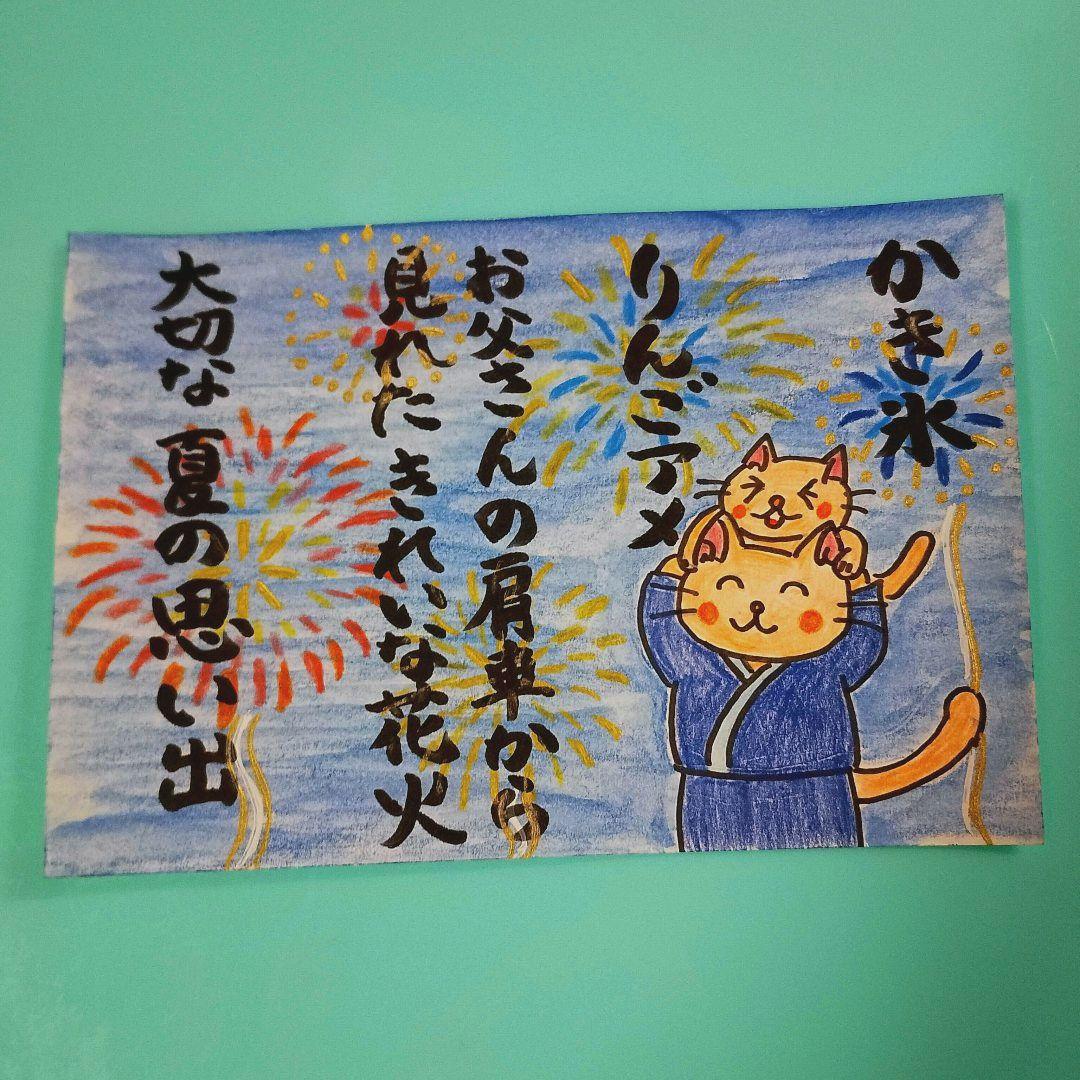 かき氷
りんごアメ
お父さんの肩車から
見れた きれいな花火
大切な 夏の思い出